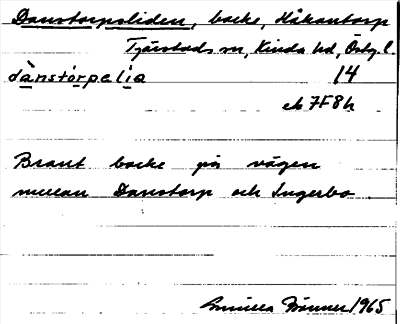 Danstorpsliden, backe, Håkantorp
Tjärstads sn, Kinda hd, Östg.l.
dànstórpelìa 14
ek 7F8h
Brant backe på vägen
mellan Danstorp och Ingerbo.
Gunilla Brönner 1965